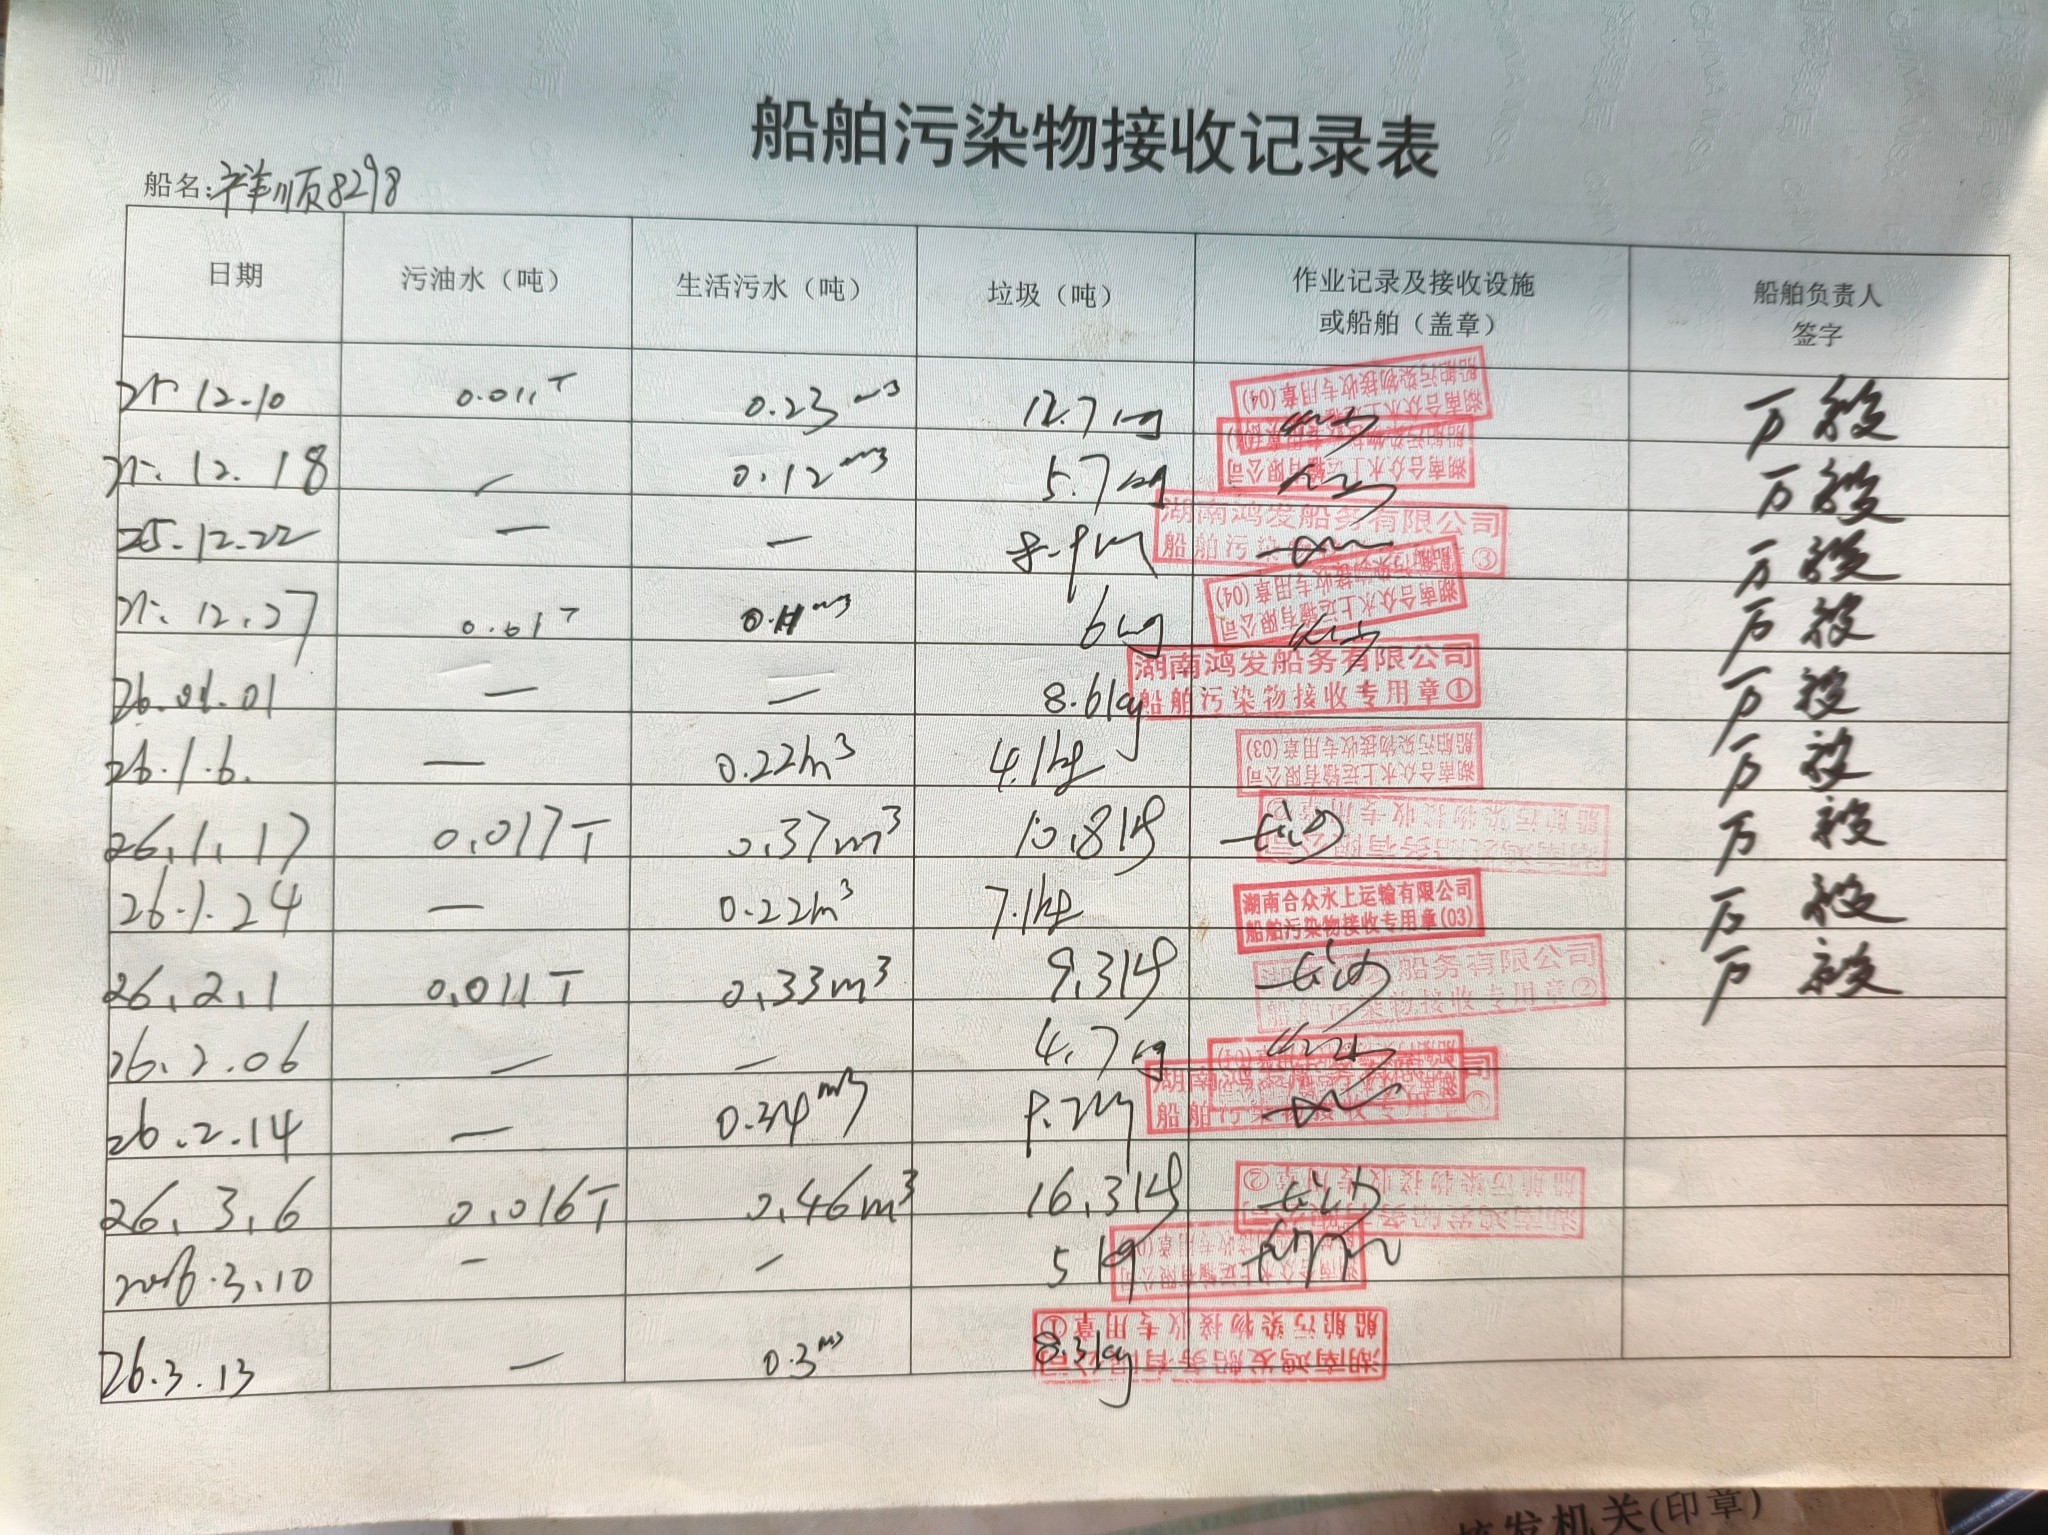 船舶污染物接收记录表
船名:祥顺8298
日期 污油水（吨） 生活污水（吨） 垃圾（吨） 作业记录及接收设施或船舶（盖章） 船舶负责人签字
25.12.10 0.011T 0.23m³ 12.7kg 湖南合众水上运输有限公司 船舶污染物接收专用章(04) 万
25.12.18 — 0.12m³ 5.7kg 湖南合众水上运输有限公司 万
25.12.22 — — 8.9kg 湖南鸿发船务有限公司 船舶污染物接收专用章③ 万
25.12.27 0.01T 0.11m³ 6kg 湖南合众水上运输有限公司 船舶污染物接收专用章(04) 万
26.01.01 — — 8.6kg 湖南鸿发船务有限公司 船舶污染物接收专用章① 万
26.1.6. — 0.22m³ 4.1kg 湖南合众水上运输有限公司 船舶污染物接收专用章(03) 万
26.1.17 0.017T 0.37m³ 10.8kg 湖南鸿发船务有限公司 船舶污染物接收专用章② 万
26.1.24 — 0.22m³ 7.1kg 湖南合众水上运输有限公司 船舶污染物接收专用章(03) 万
26.2.1 0.011T 0.33m³ 9.3kg 湖南鸿发船务有限公司 船舶污染物接收专用章② 万
26.2.06 — — 4.7kg
26.2.14 — 0.34m³ 9.2kg 湖南鸿发船务有限公司 船舶污染物接收专用章
26.3.6 0.016T 0.46m³ 16.3kg 湖南鸿发船务有限公司 船舶污染物接收专用章②
2026.3.10 — — 5kg 湖南合众水上运输有限公司
26.3.13 — 0.3m³ 8.3kg 湖南鸿发船务有限公司 船舶污染物接收专用章①
核发机关(印章)